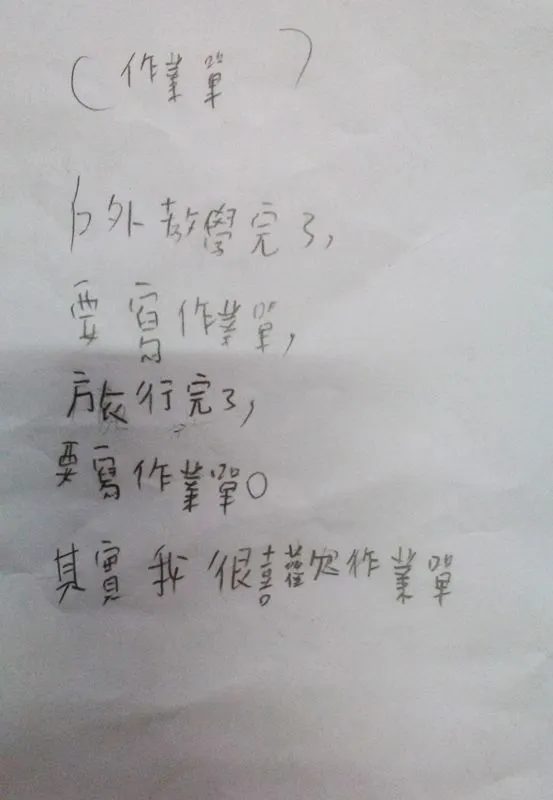 (作業單)
戶外教學完了,
要寫作業單,
旅行完了,
要寫作業單。
其實我很喜歡作業單